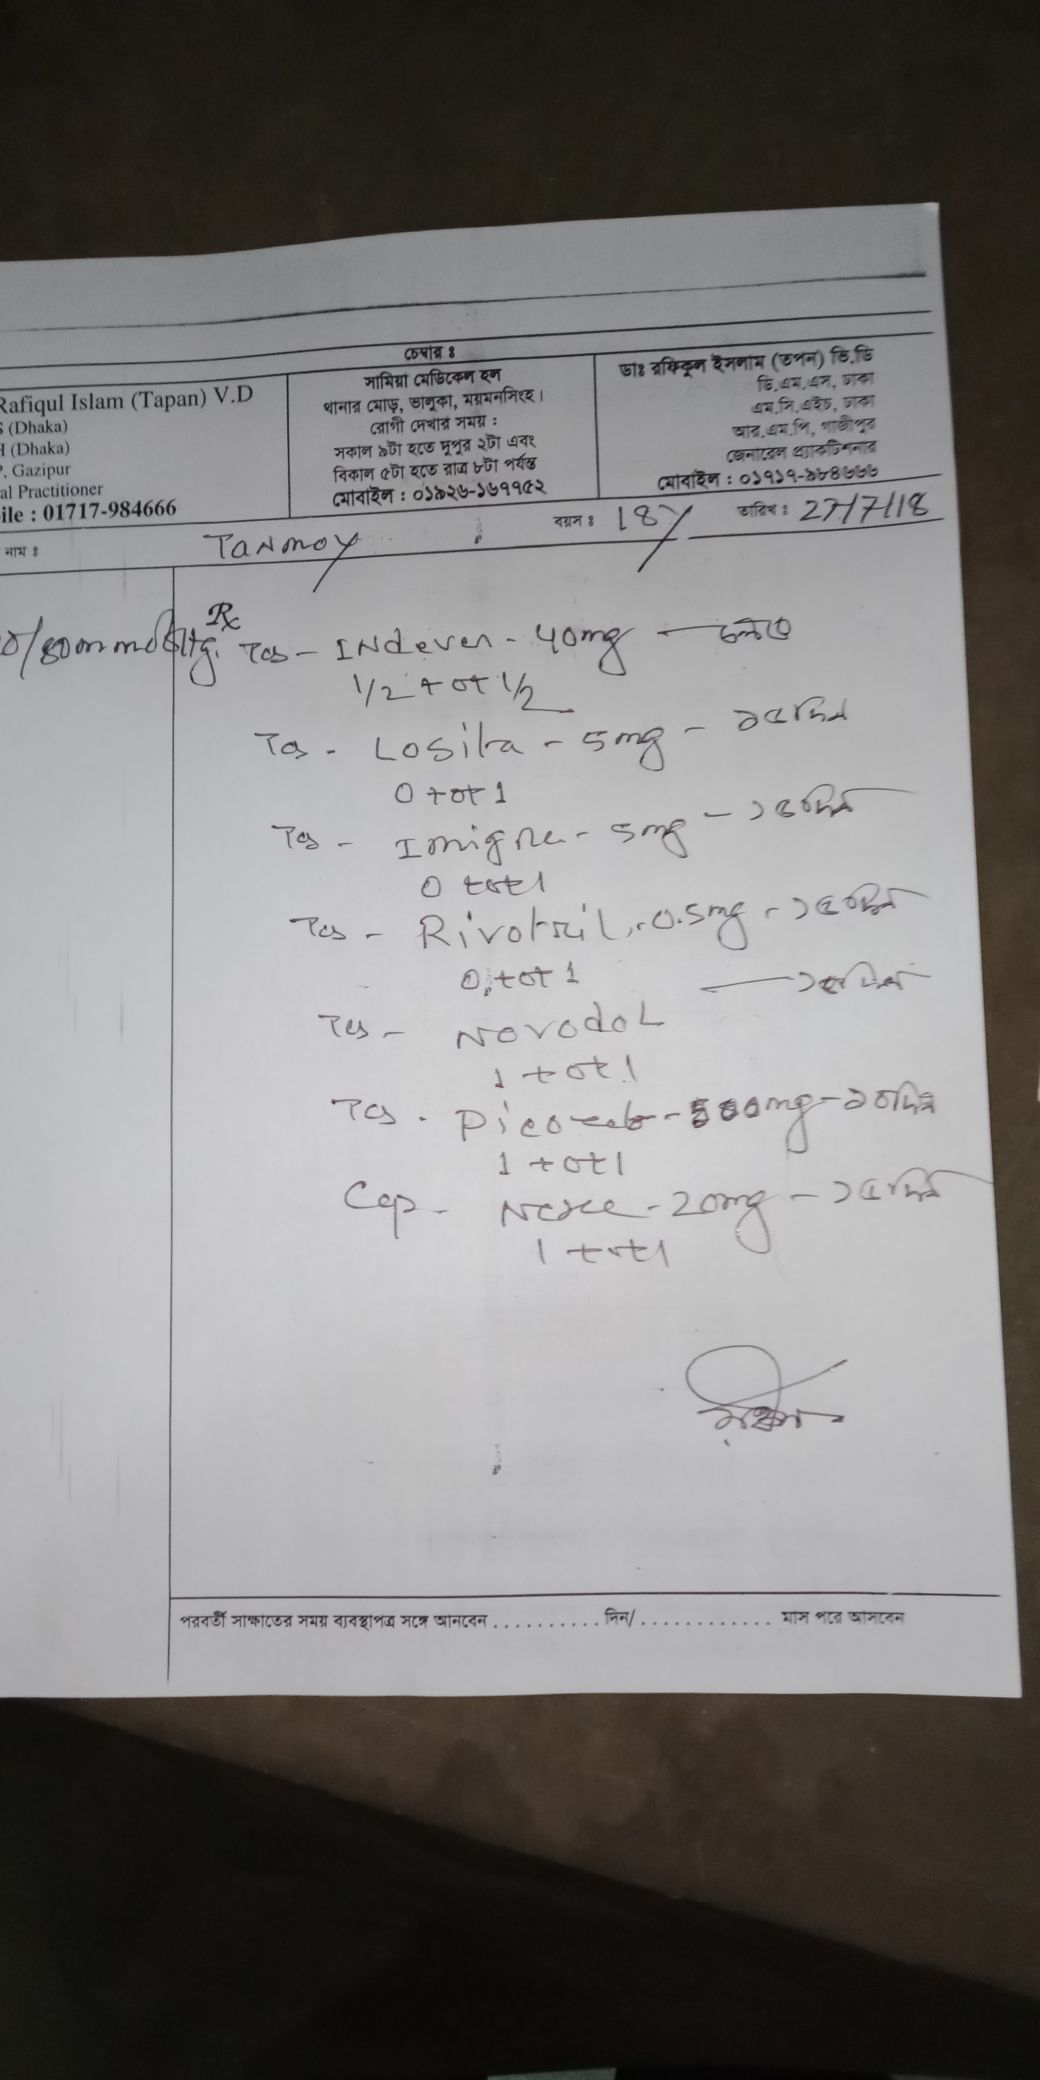 চেম্বার ঃ
Rafiqul Islam (Tapan) V.D
(Dhaka)
(Dhaka)
Gazipur
al Practitioner
ile : 01717-984666
সামিয়া মেডিকেল হল
থানার মোড়, ভালুকা, ময়মনসিংহ।
রোগী দেখার সময় :
সকাল ৯টা হতে দুপুর ২টা এবং
বিকাল ৫টা হতে রাত্র ৮টা পর্যন্ত
মোবাইল : ০১৯২৬-১৬৭১৫২
ডাঃ রফিকুল ইসলাম (তপন) ভি.ডি
ডি.এম.এস, ঢাকা
এম.সি.এইচ, ঢাকা
আর.এম.পি, গাজীপুর
জেনারেল প্র্যাকটিশনার
মোবাইল : ০১৭১৭-৯৮৪৬৬৬
নাম ঃ Tanmoy বয়স ঃ 18y তারিখ ঃ 27/7/18
Rx
Tab - INdever - 40mg - চলবে
1/2 + 0 + 1/2
Tab - Losita - 5mg - ১৫ দিন
0 + 0 + 1
Tab - Imigre - 5mg - ১৫ দিন
0 + 0 + 1
Tab - Rivotril - 0.5mg - ১৫ দিন
0 + 0 + 1
Tab - Novodol - ১৫ দিন
1 + 0 + 1
Tab - 500mg - ১০ দিন
1 + 0 + 1
Cap - 20mg - ১৫ দিন
1 + 0 + 1
পরবর্তী সাক্ষাতের সময় ব্যবস্থাপত্র সঙ্গে আনবেন . . . . . . . . . . দিন/ . . . . . . . . . . . . মাস পরে আসবেন